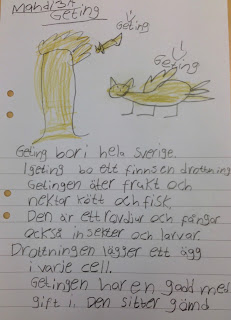 Mahdi 3A
Geting
Geting
Geting
Geting bor i hela Sverige.
I geting bo ett finns en drottning
Getingen äter frukt och
nektar kött och fisk,
Den är ett rovdjur och fångar
också insekter och larvar.
Drottningen lägger ett ägg
i varje cell.
Getingen har en gadd med
gift i. Den sitter gömd